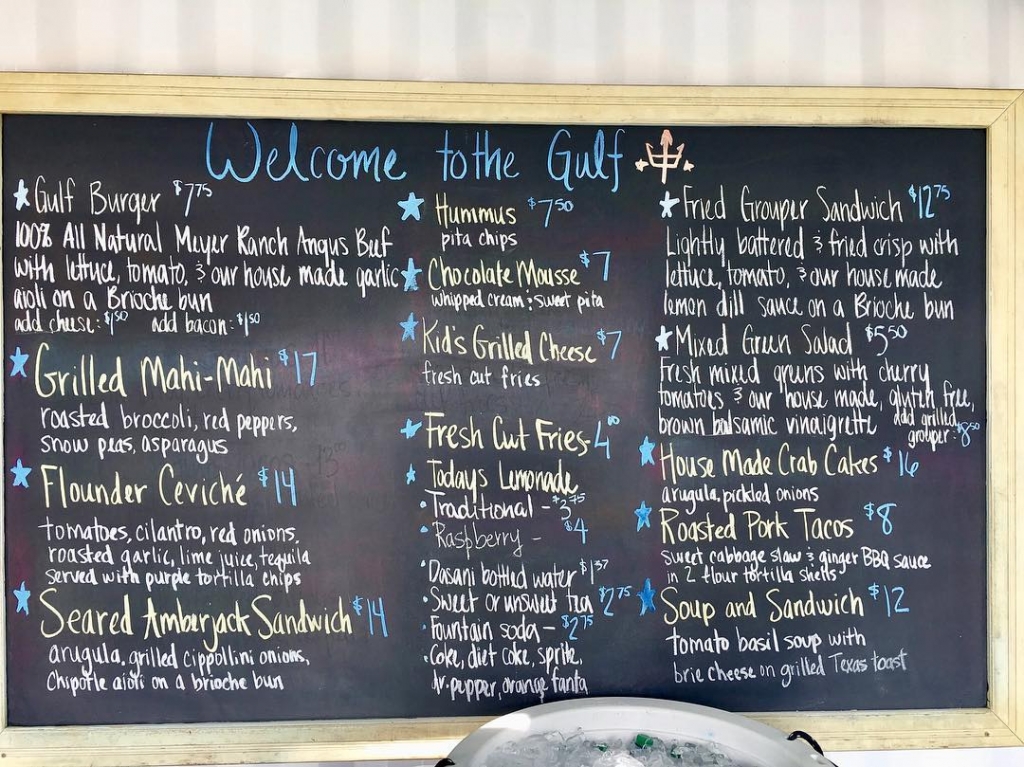 Welcome to the Gulf
Gulf Burger $7.75
100% All Natural Meyer Ranch Angus Beef
with lettuce, tomato, & our house made garlic
aioli on a Brioche bun
add cheese: $1.50 add bacon: $1.50
Grilled Mahi-Mahi $17
roasted broccoli, red peppers,
snow peas, asparagus
Flounder Ceviché $14
tomatoes, cilantro, red onions,
roasted garlic, lime juice, tequila
served with purple tortilla chips
Seared Amberjack Sandwich $14
arugula, grilled cippollini onions,
Chipotle aioli on a brioche bun
Hummus $7.50
pita chips
Chocolate Mousse $7
whipped cream & sweet pita
Kid's Grilled Cheese $7
fresh cut fries
Fresh Cut Fries- 4.00
Todays Lemonade
• Traditional - $3.75
• Raspberry - $4
• Dasani bottled water $1.37
• Sweet or unsweet tea $2.75
• Fountain soda - $2.75
• Coke, diet coke, sprite,
dr. pepper, orange fanta
Fried Grouper Sandwich $12.75
Lightly battered & fried crisp with
lettuce, tomato, & our house made
lemon dill sauce on a Brioche bun
Mixed Green Salad $5.50
Fresh mixed greens with cherry
tomatoes & our house made, gluten free,
brown balsamic vinaigrette add grilled
grouper: $8.50
House Made Crab Cakes $16
arugula, pickled onions
Roasted Pork Tacos $8
sweet cabbage slaw & ginger BBQ sauce
in 2 flour tortilla shells
Soup and Sandwich $12
tomato basil soup with
brie cheese on grilled Texas toast